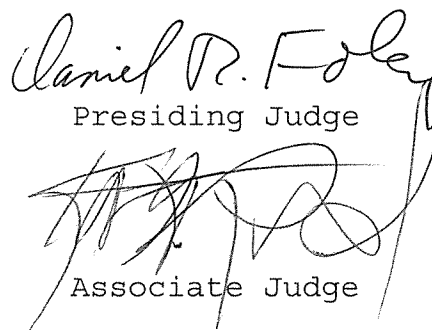 Daniel R. Foley
Presiding Judge
Associate Judge